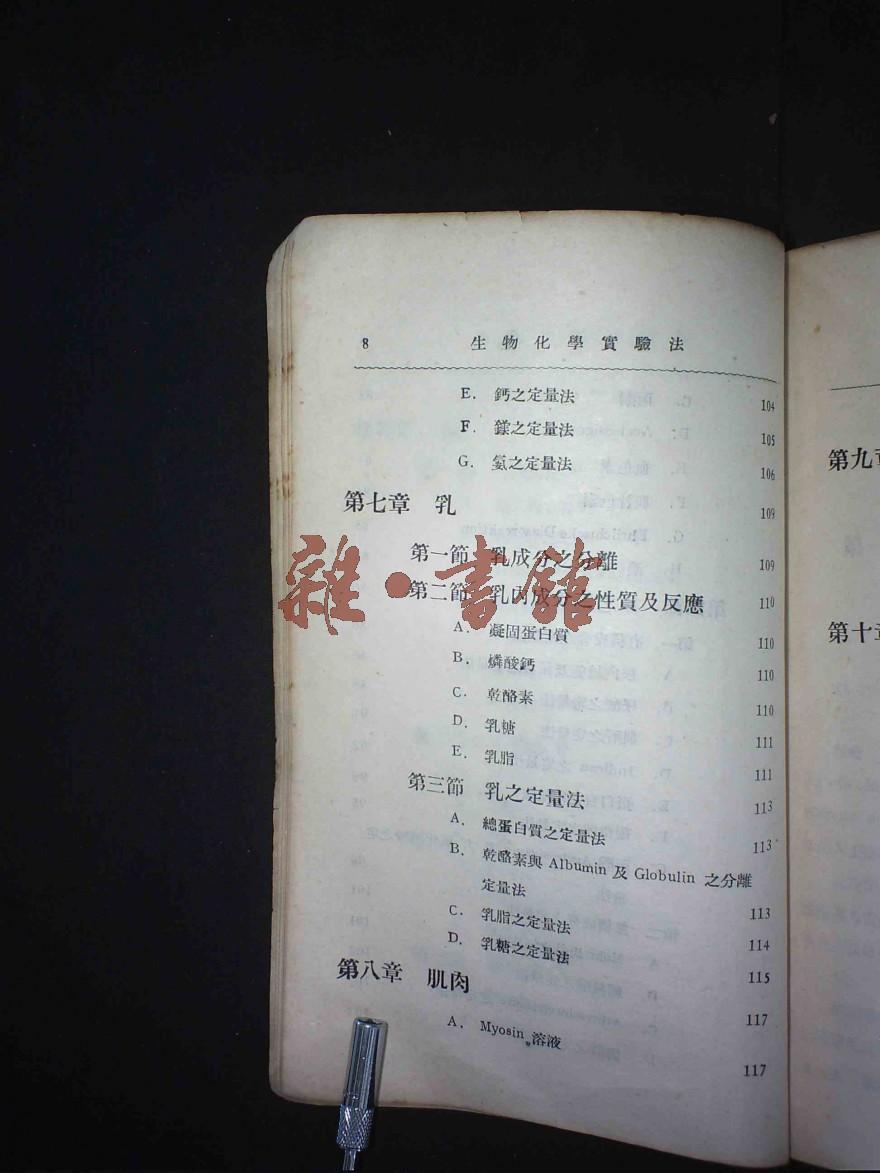 8 生物化學實驗法
E. 鈣之定量法 104
F. 鎂之定量法 105
G. 氨之定量法 106
第七章 乳 109
第一節 乳成分之分離 109
第二節 乳內成分之性質及反應 110
A. 凝固蛋白質 110
B. 燐酸鈣 110
C. 乾酪素 110
D. 乳糖 111
E. 乳脂 111
第三節 乳之定量法 113
A. 總蛋白質之定量法 113
B. 乾酪素與 Albumin 及 Globulin 之分離
定量法 113
C. 乳脂之定量法 114
D. 乳糖之定量法 115
第八章 肌肉 117
A. Myosin 溶液 117
雜·書館
第九章
第十